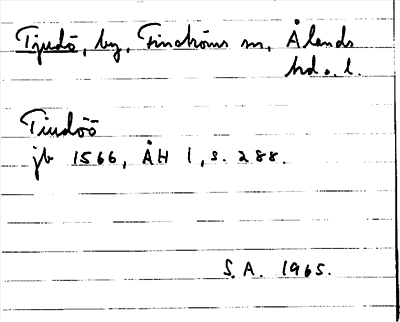 Tjudö, by, Finströms sn, Ålands
hd o. l.
Tiudöö
jb 1566, ÅH 1, s. 288.
S.A. 1965.